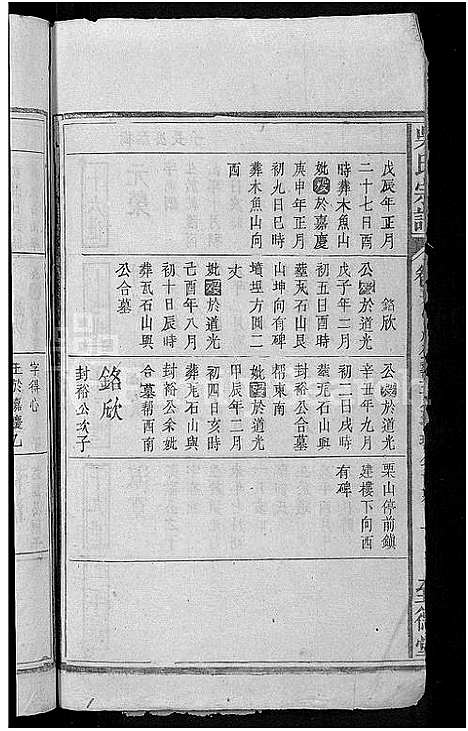 吳氏宗譜
戊辰年正月
二十七日酉
時葬木魚山
妣歿於嘉慶
庚申年正月
初九日巳時
葬木魚山向
酉
銘欣
公歿於道光
戊子年二月
初五日酉時
墓瓦石山艮
山坤向有碑
墳埕方圓二
丈
妣歿於道光
己酉年八月
初十日辰時
葬瓦石山與
公合墓
公歿於道光
辛丑年九月
初二日戌時
墓瓦石山與
封裕公合墓
幇東南
妣歿於道光
甲辰年二月
初四日亥時
葬瓦石山與
封裕公余妣
合墓幇西南
銘欣
封裕公次子
字得心
生於嘉慶乙
栗山停前鎮
建樓下向西
有碑
至德堂